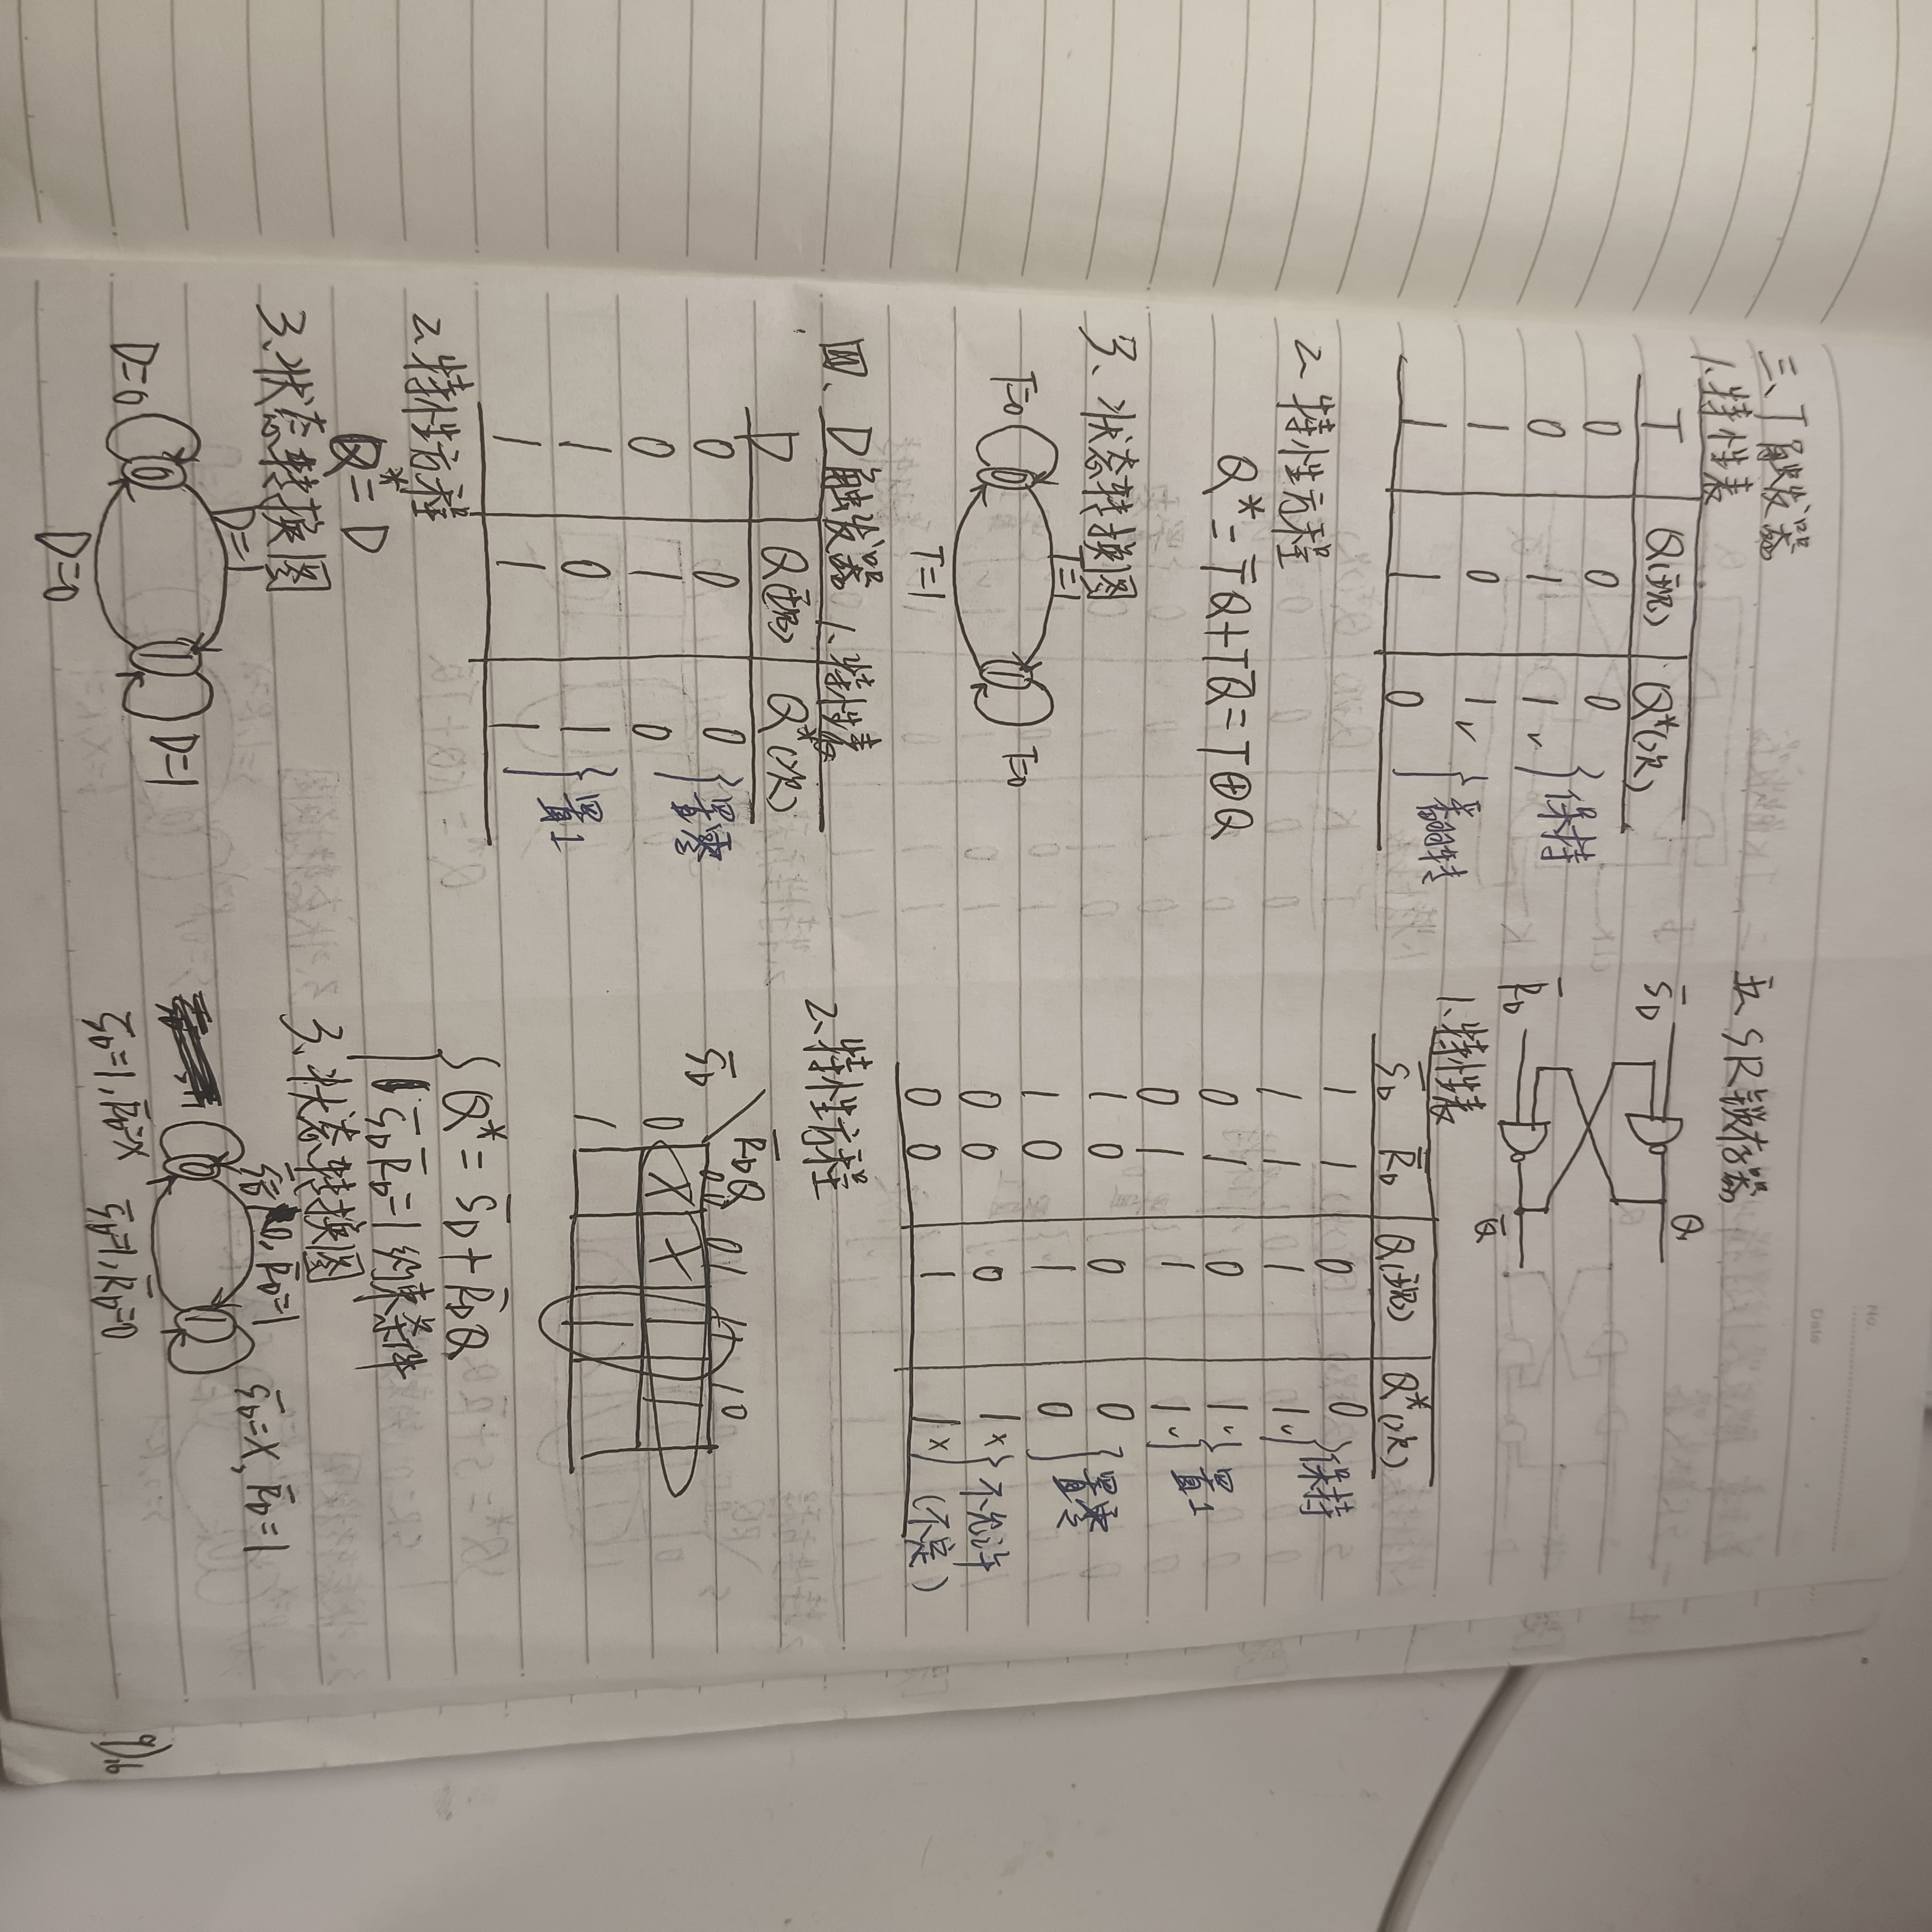 No.
Date
三、T触发器
1、特性表
T Q(现) Q*(次)
0 0 0
0 1 1 ✓
保持
1 0 1 ✓
1 1 0
翻转
2、特性方程
Q* = T̅Q+TQ̅ = T⊕Q
3、状态转换图
T=1
T=0 0 1 T=0
T=1
四、D触发器 1、特性表
D Q(现) Q*(次)
0 0 0
0 1 0
置零
1 0 1
1 1 1
置1
2、特性方程
Q* = D
3、状态转换图
D=1
D=0 0 1 D=1
D=0
五、SR锁存器
S̅D Q
R̅D Q̅
1、特性表
S̅D R̅D Q(现) Q*(次)
1 1 0 0
1 1 1 1 ✓
保持
0 1 0 1 ✓
0 1 1 1 ✓
置1
1 0 0 0
1 0 1 0
置零
0 0 0 1 ×
0 0 1 1 ×
不允许
(不定)
2、特性方程
R̅DQ
S̅D 00 01 11 10
0 × × 1 1
1 1
Q* = S̅D + R̅DQ
S̅D R̅D=1 约束条件
3、状态转换图
S̅D=0, R̅D=1
S̅D=×, R̅D=1
0 1
S̅D=1, R̅D=×
S̅D=1, R̅D=0